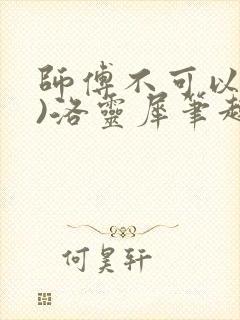 師傅不可以
)洛靈犀筆趣
何昊軒